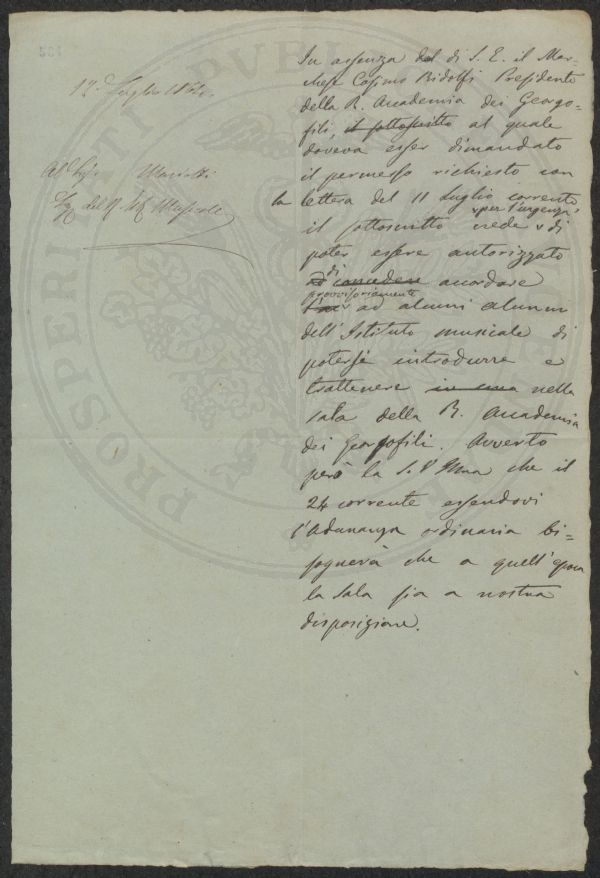 12 Luglio 1860.
Al Sigr. Mariotti
Seg. del R. Musicale
In assenza del di S. E. il Mar=
chese Cosimo Ridolfi Presidente
della R. Accademia dei Georgo=
fili, il sottoscritto al quale
doveva esser dimandato
il permesso richiesto con
la lettera del 11 Luglio corrente
il sottoscritto crede per l'urgenza, di
poter essere autorizzato
ad di concedere accordare
provvisoriamente ad alcuni alunni
dell'Istituto musicale di
potersi introdurre e
trattenere in una nella
sala della R. Accademia
dei Georgofili. Avverto
però la S. V. Illma che il
24 corrente essendovi
l'Adunanza ordinaria bi=
sognerà che a quell'epoca
la sala sia a nostra
disposizione.
PROSPERITATI PUBL